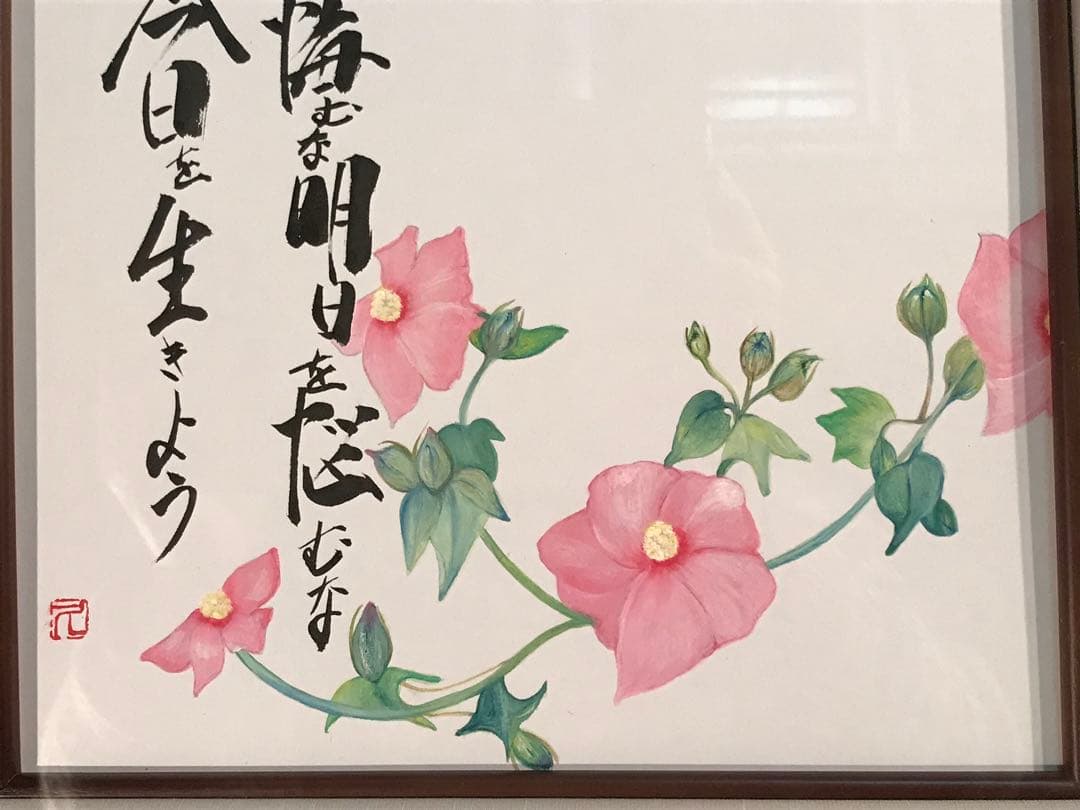 悔むな明日を悩むな
今日を生きよう
元